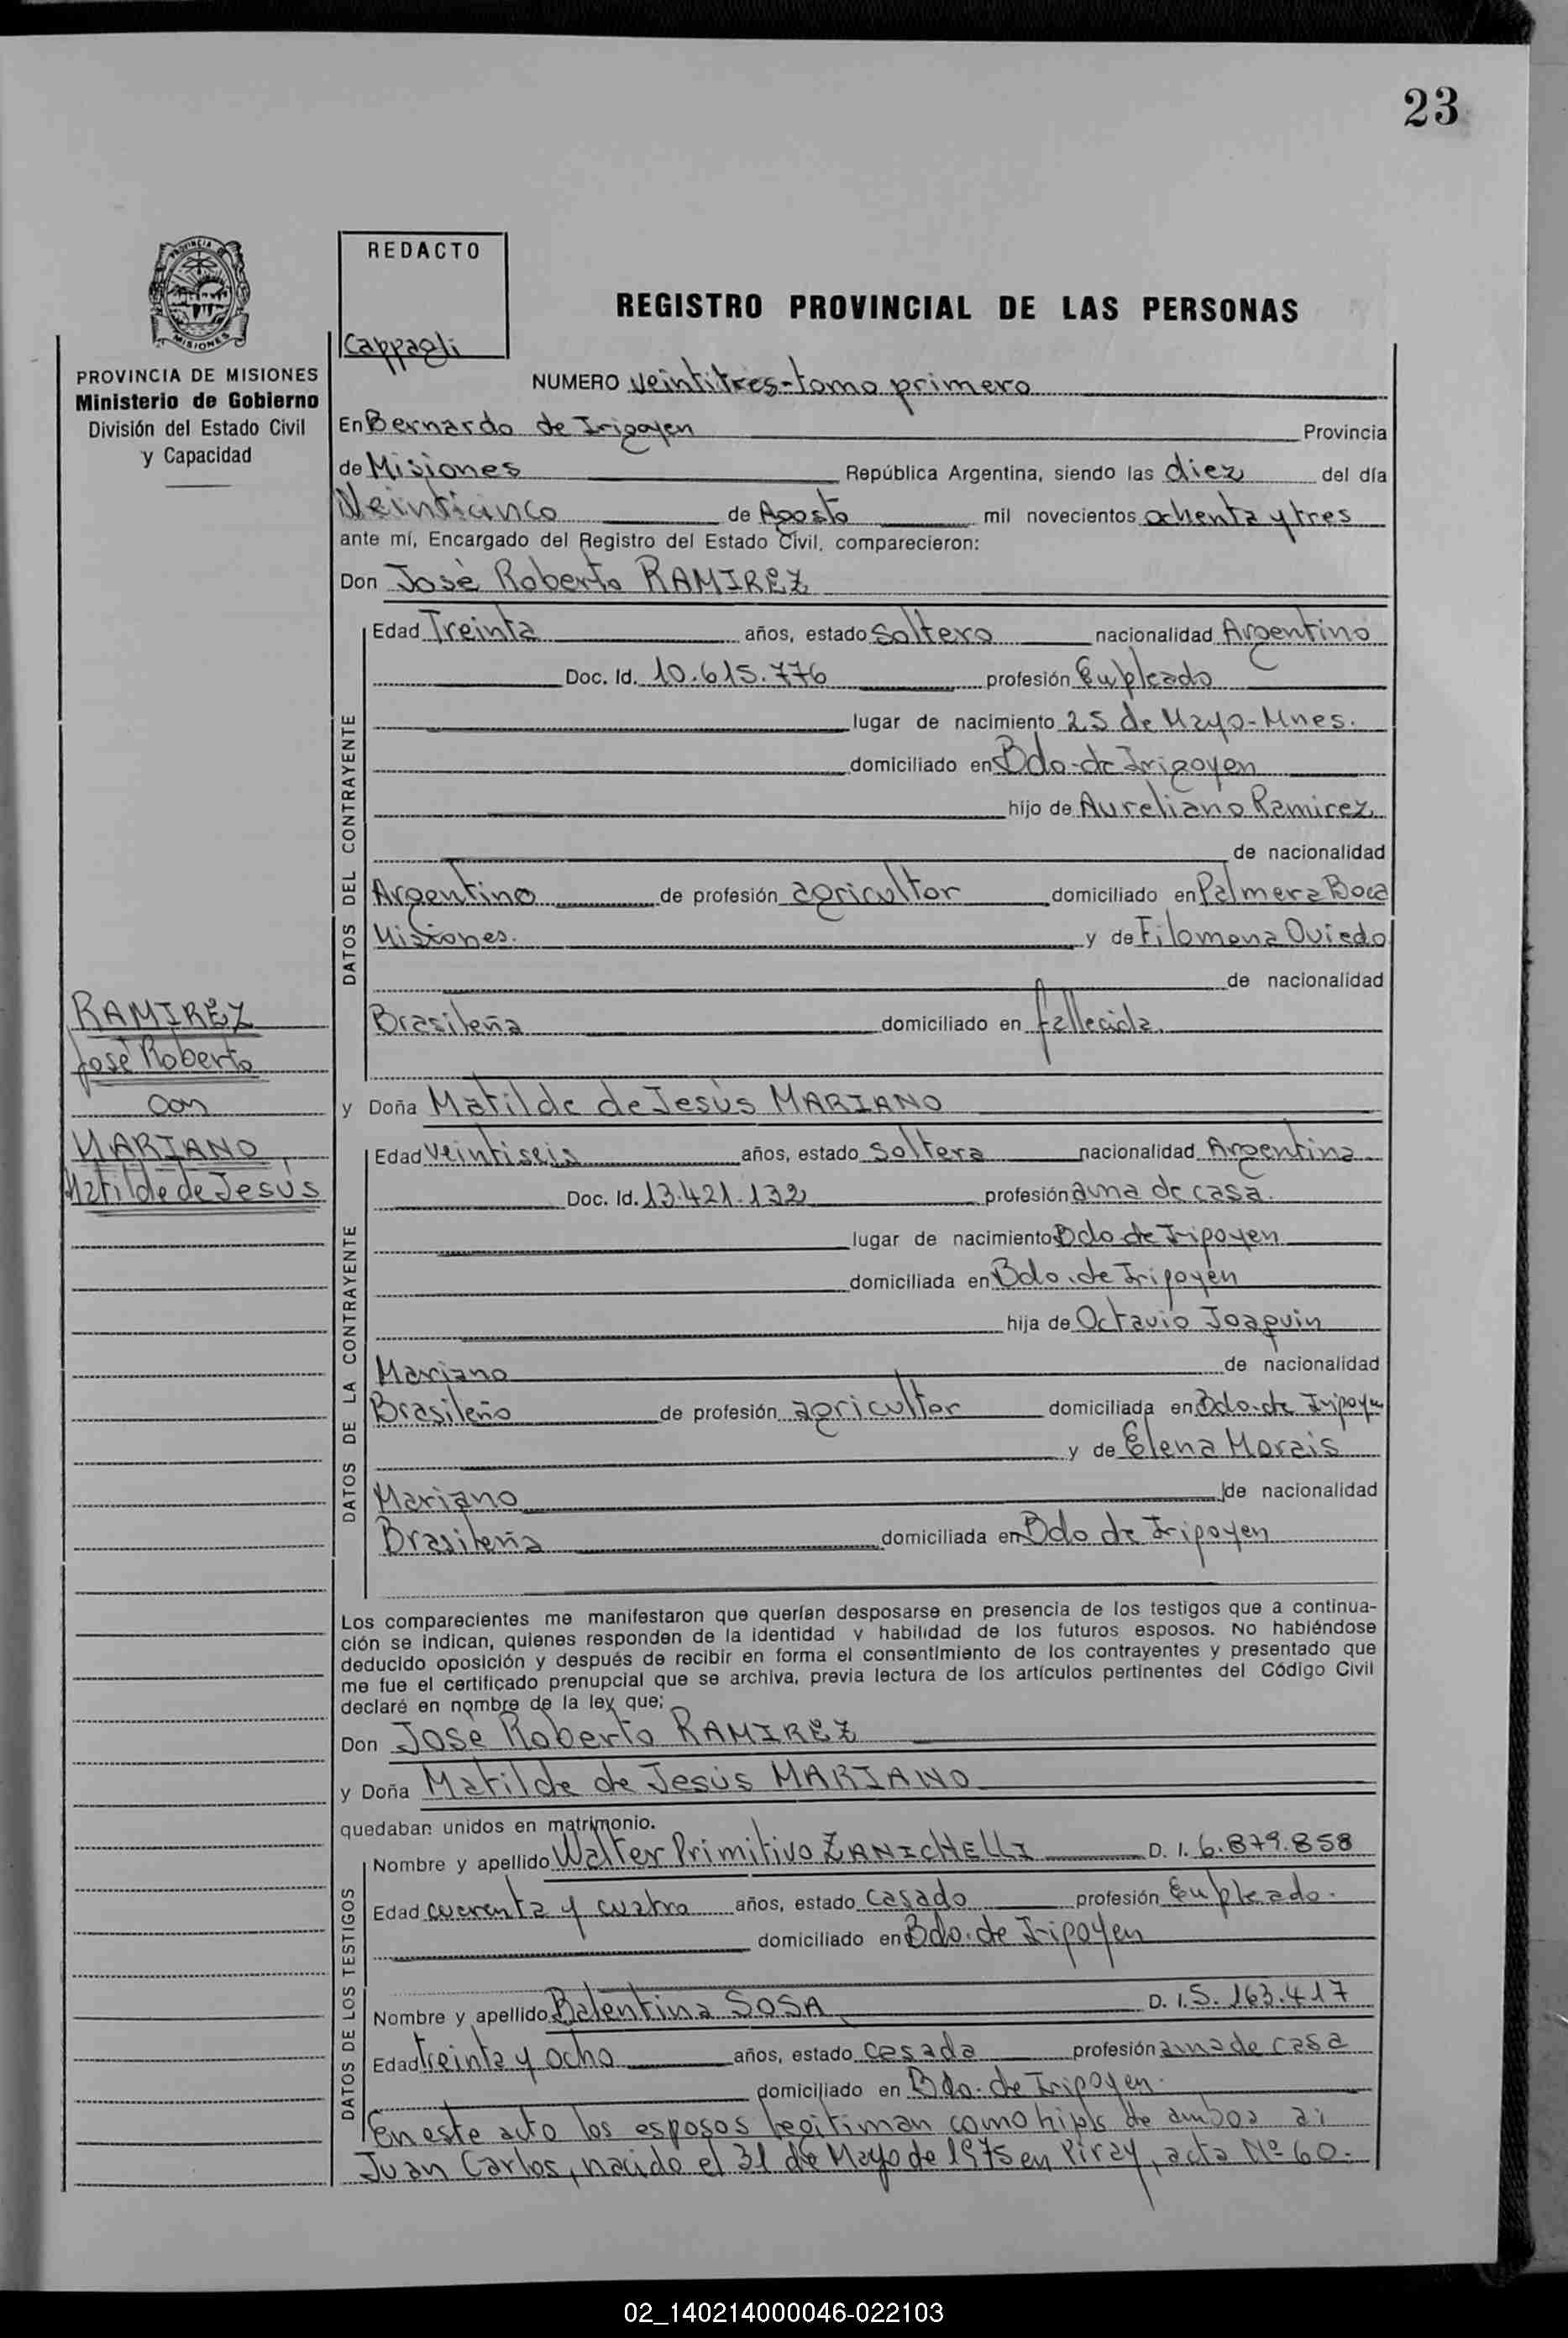 23
PROVINCIA DE
MISIONES
REDACTO
Cappagli
REGISTRO PROVINCIAL DE LAS PERSONAS
PROVINCIA DE MISIONES
Ministerio de Gobierno
División del Estado Civil
y Capacidad
NUMERO veintitres-tomo primero
En Bernardo de Irigoyen Provincia
de Misiones República Argentina, siendo las diez del día
Veinticinco de Agosto mil novecientos ochenta y tres
ante mí, Encargado del Registro del Estado Civil, comparecieron:
Don José Roberto RAMIREZ
DATOS DEL CONTRAYENTE
Edad Treinta años, estado Soltero nacionalidad Argentino
Doc. Id. 10.615.776 profesión Empleado
lugar de nacimiento 25 de Mayo-Mnes.
domiciliado en Bdo-de Irigoyen
hijo de Aureliano Ramirez
de nacionalidad
Argentino de profesión agricultor domiciliado en Palmera Boca
Misiones. y de Filomena Oviedo
de nacionalidad
Brasileña domiciliado en fallecida.
RAMIREZ
José Roberto
con
MARIANO
Matilde de Jesús
y Doña Matilde de Jesús MARIANO
DATOS DE LA CONTRAYENTE
Edad veintiseis años, estado Soltera nacionalidad Argentina
Doc. Id. 13.421.132 profesión ama de casa.
lugar de nacimiento Bdo de Irigoyen
domiciliada en Bdo. de Irigoyen
hija de Octavio Joaquin
Mariano de nacionalidad
Brasileño de profesión agricultor domiciliada en Bdo. de Irigoyen
y de Elena Morais
Mariano de nacionalidad
Brasileña domiciliada en Bdo de Irigoyen
Los comparecientes me manifestaron que querían desposarse en presencia de los testigos que a continua-
ción se indican, quienes responden de la identidad y habilidad de los futuros esposos. No habiéndose
deducido oposición y después de recibir en forma el consentimiento de los contrayentes y presentado que
me fue el certificado prenupcial que se archiva, previa lectura de los artículos pertinentes del Código Civil
declaré en nombre de la ley que:
Don José Roberto RAMIREZ
y Doña Matilde de Jesús MARIANO
quedaban unidos en matrimonio.
DATOS DE LOS TESTIGOS
Nombre y apellido Walter Primitivo ZANICHELLI D. I. 6.879.858
Edad cuarenta y cuatro años, estado casado profesión Empleado.
domiciliado en Bdo. de Irigoyen
Nombre y apellido Balentina SOSA D. I. 5.163.417
Edad treinta y ocho años, estado casada profesión ama de casa
domiciliado en Bdo. de Irigoyen.
En este acto los esposos legitiman como hijo de ambos a:
Juan Carlos, nacido el 31 de Mayo de 1975 en Piray, acta Nº 60.
02_140214000046-022103